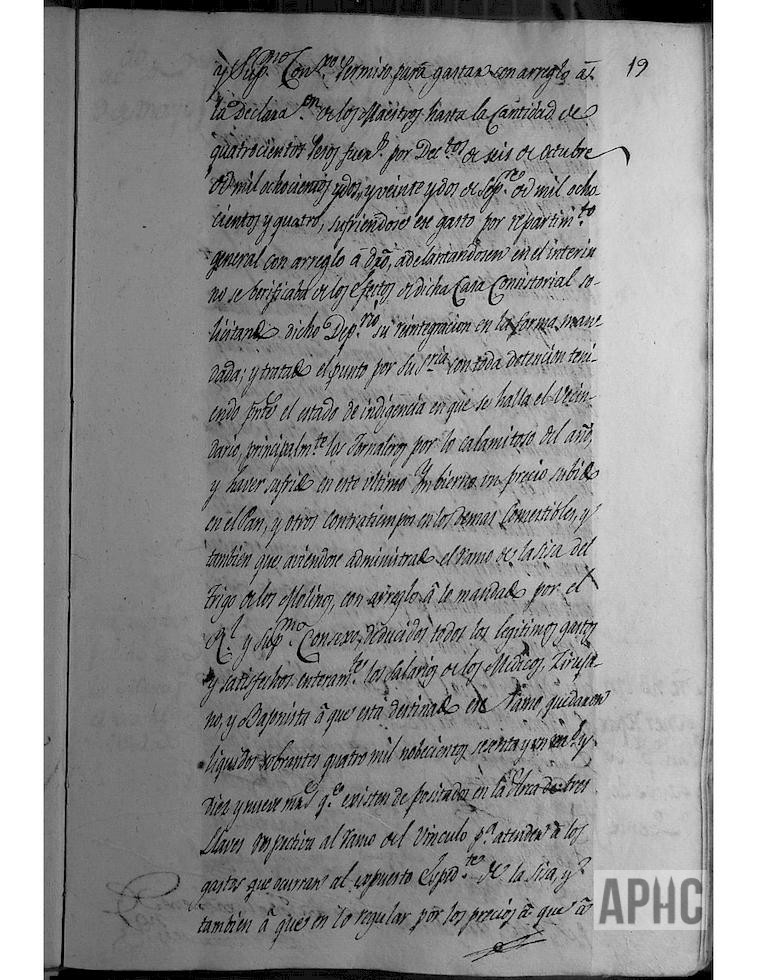 19
y Sup.mo Con.xo permiso para gastar con arreglo á
la Declara.on de los Maestros hasta la Cantidad de
quatrocientos pesos fuer.s por Dec.tos de seis de Octubre
de mil ochocientos y dos, y veinte y dos de Sep.re de mil ocho
cientos y quatro, sufriendose ese gasto por repartim.to
general con arreglo á dro, adelantandosen en el interin
no se berificaba de los efectos de dicha Casa Consistorial so-
licitando dicho Dep.rio su reintegracion en la forma man-
dada; y tratado el punto por su S.ria con toda detencion teni-
endo pnte el estado de indigencia en que se halla el Vecin-
dario, principalm.te los Jornaleros por lo calamitoso del año,
y haver sufrido en este ultimo Ynbierno un precio subido
en el Pan, y otros contratiempos en los demas Comestibles, y
tambien que aviendose administrado el ramo de la sisa del
Trigo de los Molinos, con arreglo á lo mandado por el
R.l y Sup.mo Consexo, deducidos todos los legitimos gastos
y satisfechos enteram.te los Salarios de los Medicos, Ziruja-
no, y Baxonista á que está destinado ese Ramo quedaron
liquidos sobrantes quatro mil nobecientos sesenta y un r.s y
diez y nueve mrs q.e existen depositados en la Arca de tres
Llaves respectiva al ramo del Vinculo p.a atender á los
gastos que ocurran al expuesto Exped.te de la sisa, y
tambien á que en lo regular por los precios á que á
APHC